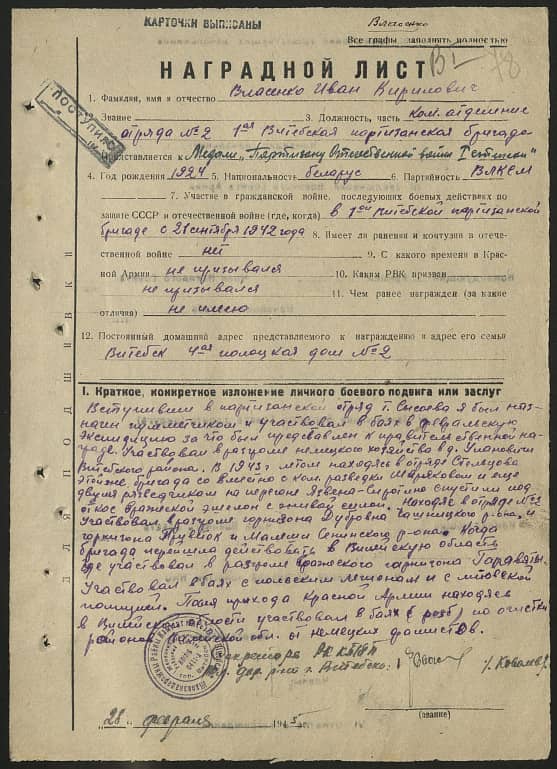 КАРТОЧКИ ВЫПИСАНЫ
Власенко
Все графы заполнять полностью
НАГРАДНОЙ ЛИСТ
В1 78
ПОСТУПИЛО
1. Фамилия, имя и отчество Власенко Иван Кирилович
Звание 3. Должность, часть ком. отделение
отряда №2 1ая Витебская партизанская бригада
Представляется к Медали „Партизану Отечественной войны I степени"
4. Год рождения 1924 5. Национальность беларус 6. Партийность ВЛКСМ
7. Участие в гражданской войне, последующих боевых действиях по
защите СССР и отечественной войне (где, когда) в 1ой Витебской партизанской
бригаде с 21 сентября 1942 года 8. Имеет ли ранения и контузии в отече-
ственной войне нет 9. С какого времени в Крас-
ной Армии не призывался 10. Каким РВК призван
не призывался 11. Чем ранее награжден (за какие
отличия) не имею
12. Постоянный домашний адрес представляемого к награждению и адрес его семьи
Витебск 4ая полоцкая дом №2
ДЛЯ ПОДШИВКИ
I. Краткое, конкретное изложение личного боевого подвига или заслуг
Вступивши в партизанский отряд т. Сысоева я был наз-
начен пулемётчиком и участвовал в боях в февральскую
Экспидицию за что был представлен к правительственной на-
граде. Участвовал в разгроме немецкого хозяйства в д. Улановичи
Витебского района. В 1943г летом находясь в отряде Стельцова
этой же бригада совместно с ком. разведки и ещё
двумя разведчиком на перегоне Язвено-Сиротино спустили под
откос вражеский эшелон с живой силой. Находясь в отряде №2
Участвовал в разгроме гарнизона Дубровна Чашницкого р-она и
гарнизона и Сенинского р-она. Когда
бригада перешла действовать в Вилейскую область
где участвовал в разгроме вражеского гарнизона
Участвовал в боях с польским легионом и с литовской
полицией. После прихода Красной Армии находясь
в Вилейской области участвовал в боях по очистки
районов области от немецких фашистов.
Секретарь РК КП/б/Б
р-на г. Витебска: / Ковалев/
(звание)
„28" февраля 1945 г.